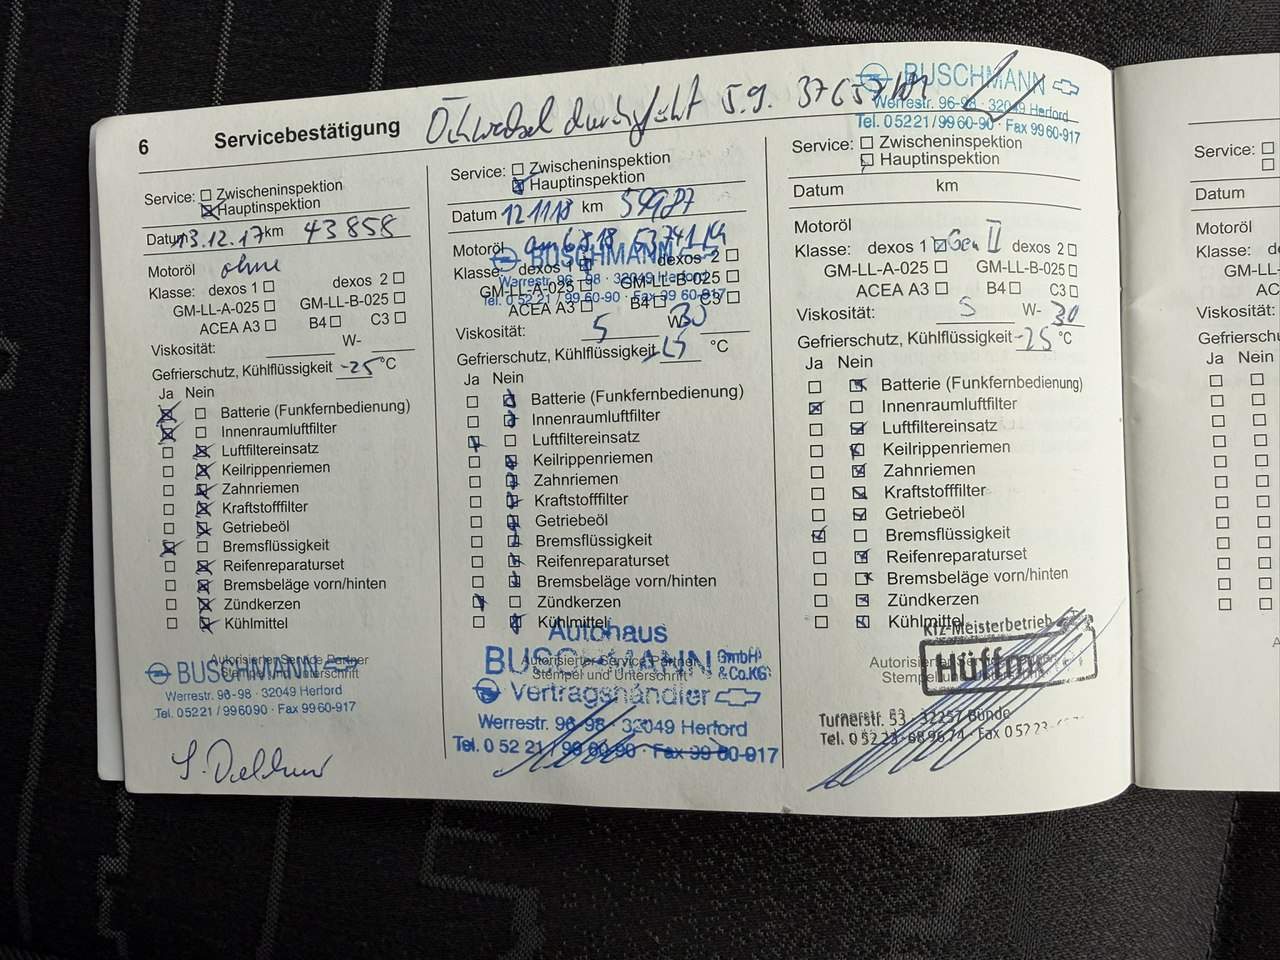 6 Servicebestätigung Ölwechsel durchgeführt 5.9. 37657 km
BUSCHMANN
Werrestr. 96-98 · 32049 Herford
Tel. 05221/9960-90 · Fax 9960-917
Service: Zwischeninspektion
Hauptinspektion
Datum 13.12.17 km 43858
Motoröl ohne
Klasse: dexos 1 dexos 2
GM-LL-A-025 GM-LL-B-025
ACEA A3 B4 C3
Viskosität: W-
Gefrierschutz, Kühlflüssigkeit -25 °C
Ja Nein
Batterie (Funkfernbedienung)
Innenraumluftfilter
Luftfiltereinsatz
Keilrippenriemen
Zahnriemen
Kraftstofffilter
Getriebeöl
Bremsflüssigkeit
Reifenreparaturset
Bremsbeläge vorn/hinten
Zündkerzen
Kühlmittel
Autorisierter Service Partner
Stempel und Unterschrift
BUSCHMANN
Werrestr. 96-98 · 32049 Herford
Tel. 05221/996090 · Fax 9960-917
Service: Zwischeninspektion
Hauptinspektion
Datum 12.11.18 km 59987
Motoröl am
BUSCHMANN
Klasse: dexos 1 dexos 2
Werrestr. 96-98 · 32049 Herford
GM-LL-A-025 GM-LL-B-025
Tel. 05221/9960-90 · Fax 9960-917
ACEA A3 B4 C3
Viskosität: 5 W- 30
Gefrierschutz, Kühlflüssigkeit °C
Ja Nein
Batterie (Funkfernbedienung)
Innenraumluftfilter
Luftfiltereinsatz
Keilrippenriemen
Zahnriemen
Kraftstofffilter
Getriebeöl
Bremsflüssigkeit
Reifenreparaturset
Bremsbeläge vorn/hinten
Zündkerzen
Kühlmittel
Autohaus
BUSCHMANN GmbH & Co.KG
Autorisierter Service Partner
Stempel und Unterschrift
Vertragshändler
Werrestr. 96-98 · 32049 Herford
Tel. 05221/9960-90 · Fax 9960-917
Service: Zwischeninspektion
Hauptinspektion
Datum km
Motoröl
Klasse: dexos 1 Gen II dexos 2
GM-LL-A-025 GM-LL-B-025
ACEA A3 B4 C3
Viskosität: 5 W- 30
Gefrierschutz, Kühlflüssigkeit -25 °C
Ja Nein
Batterie (Funkfernbedienung)
Innenraumluftfilter
Luftfiltereinsatz
Keilrippenriemen
Zahnriemen
Kraftstofffilter
Getriebeöl
Bremsflüssigkeit
Reifenreparaturset
Bremsbeläge vorn/hinten
Zündkerzen
Kühlmittel
Kfz-Meisterbetrieb
Autorisierter
Stempel und
Turnerstr. 53 · 32257 Bünde
Tel. 05223
Service:
Datum
Motoröl
Klasse:
GM-LL-
AC
Viskosität:
Gefrierschu
Ja Nein